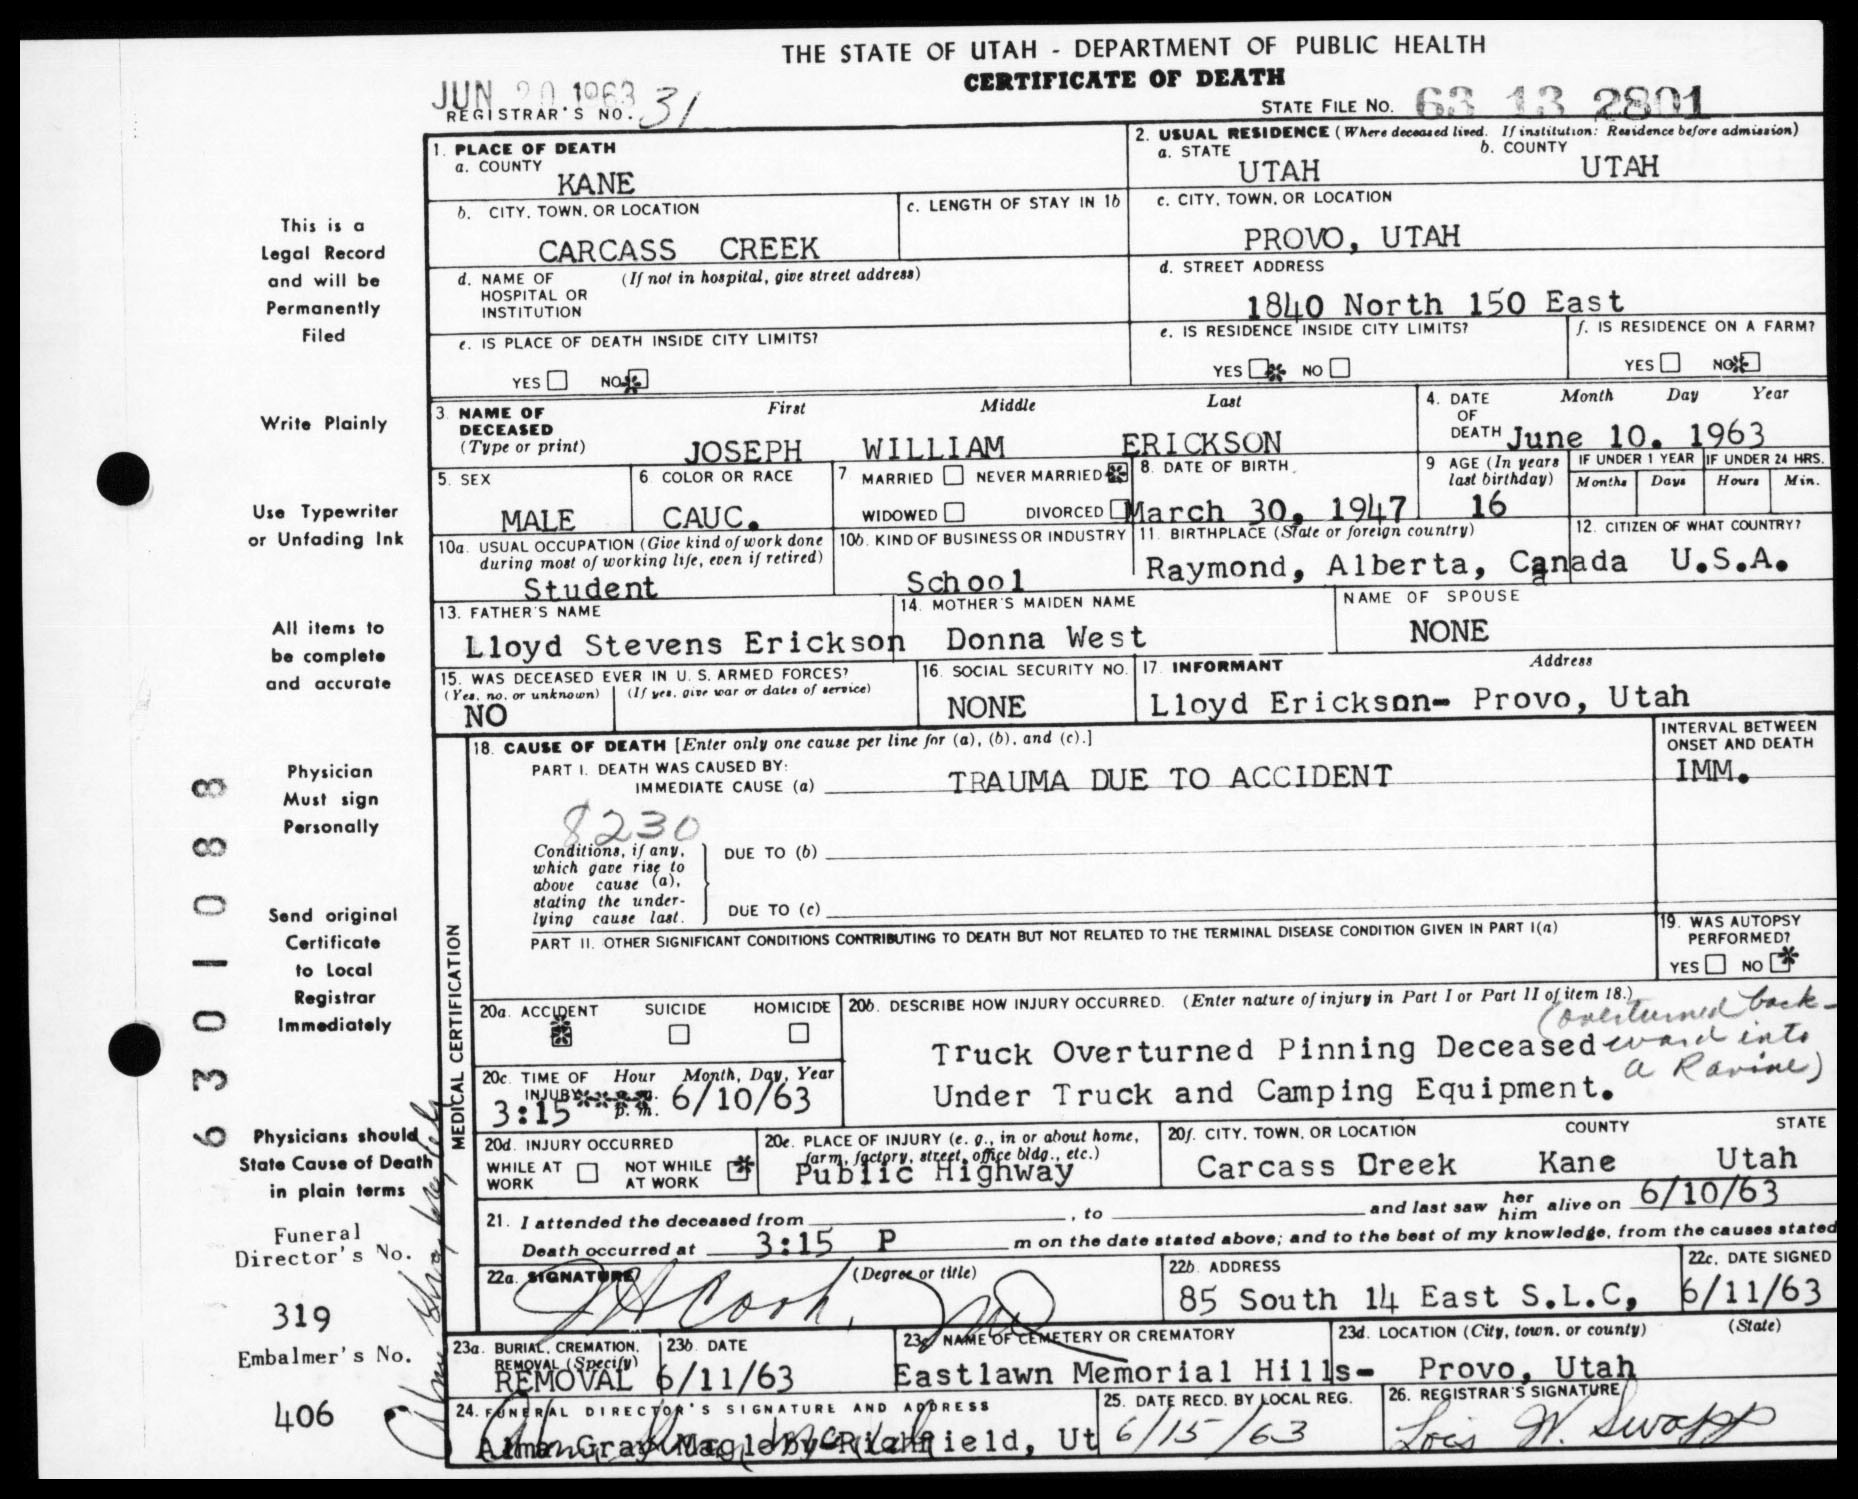 THE STATE OF UTAH - DEPARTMENT OF PUBLIC HEALTH
CERTIFICATE OF DEATH
JUN 20 1963
REGISTRAR'S NO. 31
STATE FILE NO. 63 13 2801
1. PLACE OF DEATH
a. COUNTY
KANE
2. USUAL RESIDENCE (Where deceased lived. If institution: Residence before admission)
a. STATE
UTAH
b. COUNTY
UTAH
b. CITY, TOWN, OR LOCATION
CARCASS CREEK
c. LENGTH OF STAY IN 1b
c. CITY, TOWN, OR LOCATION
PROVO, UTAH
d. NAME OF (If not in hospital, give street address)
HOSPITAL OR
INSTITUTION
d. STREET ADDRESS
1840 North 150 East
e. IS PLACE OF DEATH INSIDE CITY LIMITS?
YES NO
e. IS RESIDENCE INSIDE CITY LIMITS?
YES NO
f. IS RESIDENCE ON A FARM?
YES NO
3. NAME OF
DECEASED
(Type or print)
First Middle Last
JOSEPH WILLIAM ERICKSON
4. DATE
OF
DEATH
Month Day Year
June 10. 1963
5. SEX
MALE
6 COLOR OR RACE
CAUC.
7 MARRIED NEVER MARRIED
WIDOWED DIVORCED
8. DATE OF BIRTH
March 30, 1947
9 AGE (In years
last birthday)
16
IF UNDER 1 YEAR
Months Days
IF UNDER 24 HRS.
Hours Min.
10a. USUAL OCCUPATION (Give kind of work done
during most of working life, even if retired)
Student
10b. KIND OF BUSINESS OR INDUSTRY
School
11. BIRTHPLACE (State or foreign country)
Raymond, Alberta, Canada
12. CITIZEN OF WHAT COUNTRY?
U.S.A.
13. FATHER'S NAME
Lloyd Stevens Erickson
14. MOTHER'S MAIDEN NAME
Donna West
NAME OF SPOUSE
NONE
15. WAS DECEASED EVER IN U. S. ARMED FORCES?
(Yes, no, or unknown) (If yes, give war or dates of service)
NO
16. SOCIAL SECURITY NO.
NONE
17. INFORMANT Address
Lloyd Erickson- Provo, Utah
MEDICAL CERTIFICATION
18. CAUSE OF DEATH [Enter only one cause per line for (a), (b), and (c).]
PART I. DEATH WAS CAUSED BY:
IMMEDIATE CAUSE (a) TRAUMA DUE TO ACCIDENT
INTERVAL BETWEEN
ONSET AND DEATH
IMM.
8230
Conditions, if any,
which gave rise to
above cause (a),
stating the under-
lying cause last.
DUE TO (b)
DUE TO (c)
PART II. OTHER SIGNIFICANT CONDITIONS CONTRIBUTING TO DEATH BUT NOT RELATED TO THE TERMINAL DISEASE CONDITION GIVEN IN PART I(a)
19. WAS AUTOPSY
PERFORMED?
YES NO
20a. ACCIDENT SUICIDE HOMICIDE
20b. DESCRIBE HOW INJURY OCCURRED. (Enter nature of injury in Part I or Part II of item 18.)
(overturned back-
Truck Overturned Pinning Deceased ward into
a Ravine)
Under Truck and Camping Equipment.
20c. TIME OF Hour Month, Day, Year
INJURY
3:15 p. m. 6/10/63
20d. INJURY OCCURRED
WHILE AT
WORK
NOT WHILE
AT WORK
20e. PLACE OF INJURY (e. g., in or about home,
farm, factory, street, office bldg., etc.)
Public Highway
20f. CITY, TOWN, OR LOCATION COUNTY STATE
Carcass Creek Kane Utah
21. I attended the deceased from , to and last saw her him alive on 6/10/63
Death occurred at 3:15 P m on the date stated above; and to the best of my knowledge, from the causes stated
22a. SIGNATURE (Degree or title)
Cook, MD
22b. ADDRESS
85 South 14 East S.L.C,
22c. DATE SIGNED
6/11/63
23a. BURIAL, CREMATION,
REMOVAL (Specify)
REMOVAL
23b. DATE
6/11/63
23c. NAME OF CEMETERY OR CREMATORY
Eastlawn Memorial Hills-
23d. LOCATION (City, town, or county) (State)
Provo, Utah
24. FUNERAL DIRECTOR'S SIGNATURE AND ADDRESS
Alma Gray Magleby-Richfield, Ut
25. DATE RECD. BY LOCAL REG.
6/15/63
26. REGISTRAR'S SIGNATURE
Lois W. Swapp
This is a
Legal Record
and will be
Permanently
Filed
Write Plainly
Use Typewriter
or Unfading Ink
All items to
be complete
and accurate
Physician
Must sign
Personally
Send original
Certificate
to Local
Registrar
Immediately
Physicians should
State Cause of Death
in plain terms
Funeral
Director's No.
319
Embalmer's No.
406
6301088